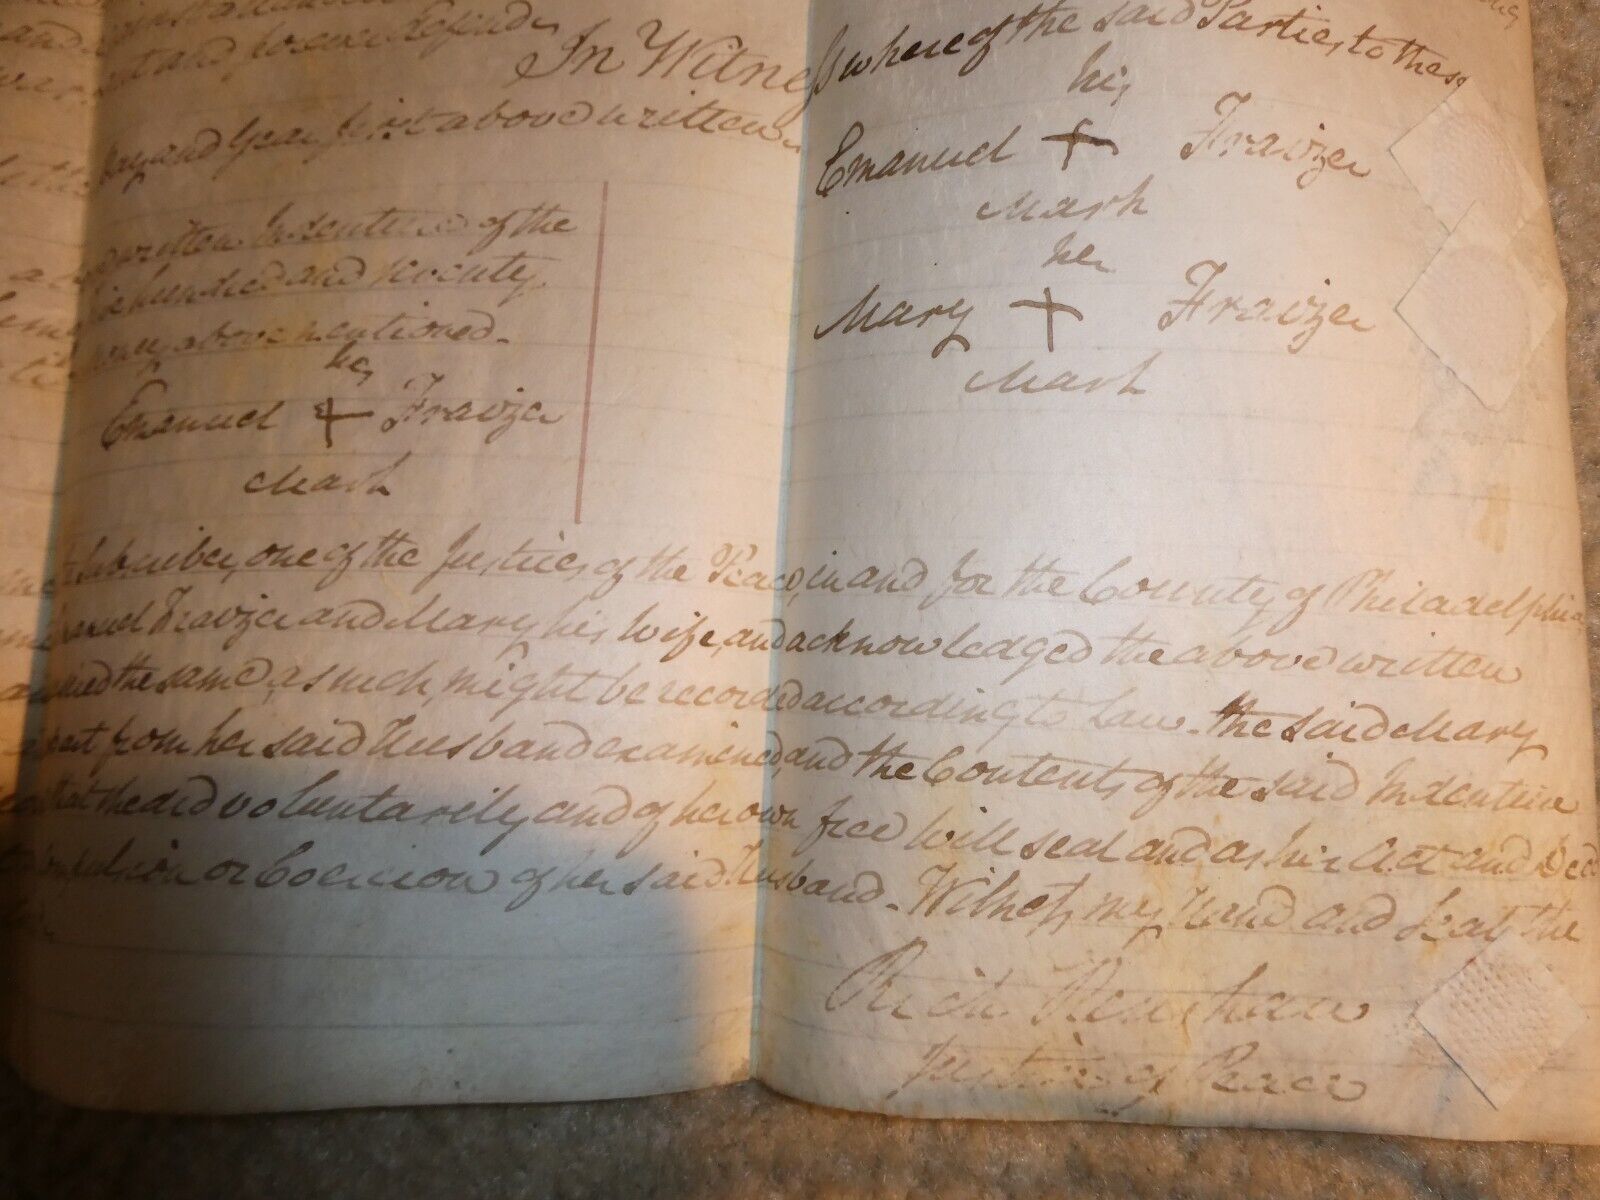 and forever defend
In Witness whereof the said Parties to these
day and Year first above written
his
Emanuel + Fraizer
Mark
her
Mary + Fraizer
Mark
written Indenture of the
hundred and seventy
money above mentioned.
his
Emanuel + Fraizer
Mark
Subscriber, one of the Justices of the Peace, in and for the County of Philadelphia
Emanuel Fraizer and Mary his Wife, and acknowledged the above written
the same, as such, might be recorded according to Law. the said Mary
apart from her said Husband examined, and the Contents of the said Indenture
that she did voluntarily and of her own free Will seal and as her Act and Deed
Compulsion or Coercion of her said Husband. Witness my Hand and Seal, the
Rich Renshaw
Justice of Peace